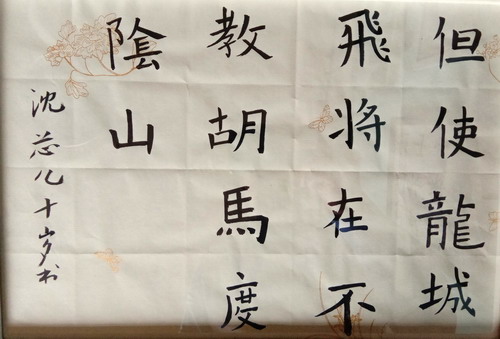 但使龍城
飛将在不
教胡馬度
陰山
沈蕊儿十岁书